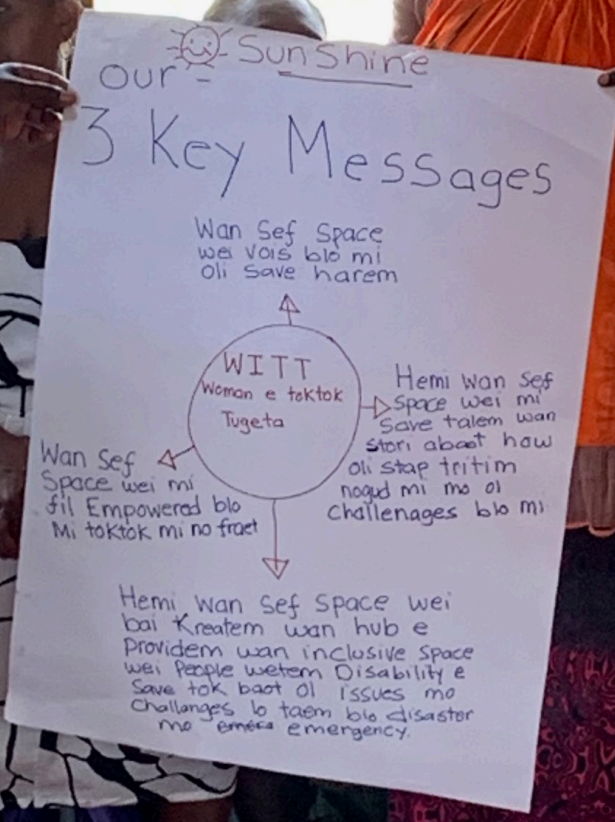 SunShine
our -
3 Key Messages
Wan Sef Space
wei vois blo mi
oli save harem
WITT
Woman e toktok
Tugeta
Hemi wan sef
Space wei mi
Save talem wan
Stori abaot how
oli stap tritim
nogud mi mo ol
Challenages blo mi
Wan Sef
Space wei mi
fil Empowered blo
Mi toktok mi no fraet
Hemi wan Sef Space wei
bai Kreatem wan hub e
Providem wan inclusive space
wei People wetem Disability e
Save tok baot ol issues mo
Challanges lo taem blo disaster
mo emergency.